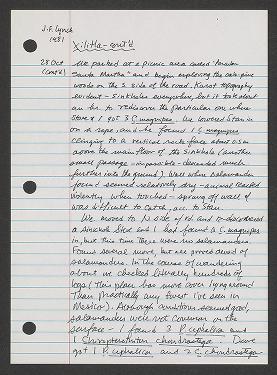 J.F. Lynch
1981
Xilitla - cont'd
28 Oct
(cont'd)
We parked at a picnic area called "Parador
Santa Martha" and begin exploring the oak-pine
woods on the S. side of the road. Karst topography
evident - sinkholes everywhere, but it took about
an hr. to rediscover the particular one where
Steve & I got 3 C. magnipes. We lowered Stan in
on a rope and he found 1 C. magnipes
clinging to a vertical rock face about 10 m
above the main floor of the sinkhole (another
small passage - impassable - descended much
further into the ground). Wall where salamander
found seemed relatively dry - animal leaped
violently when touched - sprang off wall &
was difficult to catch, acc. to Steve.
We moved to N side of rd. and rediscovered
a sinkhole Steve and I had found a C. magnipes
in, but this time there were no salamanders.
Found several more, but all proved devoid of
salamanders. In the course of wandering
about we checked literally hundreds of
logs (this place has more cover lying around
than practically any forest I've seen in
Mexico). Although conditions seemed good,
salamanders were not common on the
surface - I found 3 P. cephalica and
1 Chiropterotriton chondrostega. Dave
got 1 P. cephalica and 2 C. chondrostega